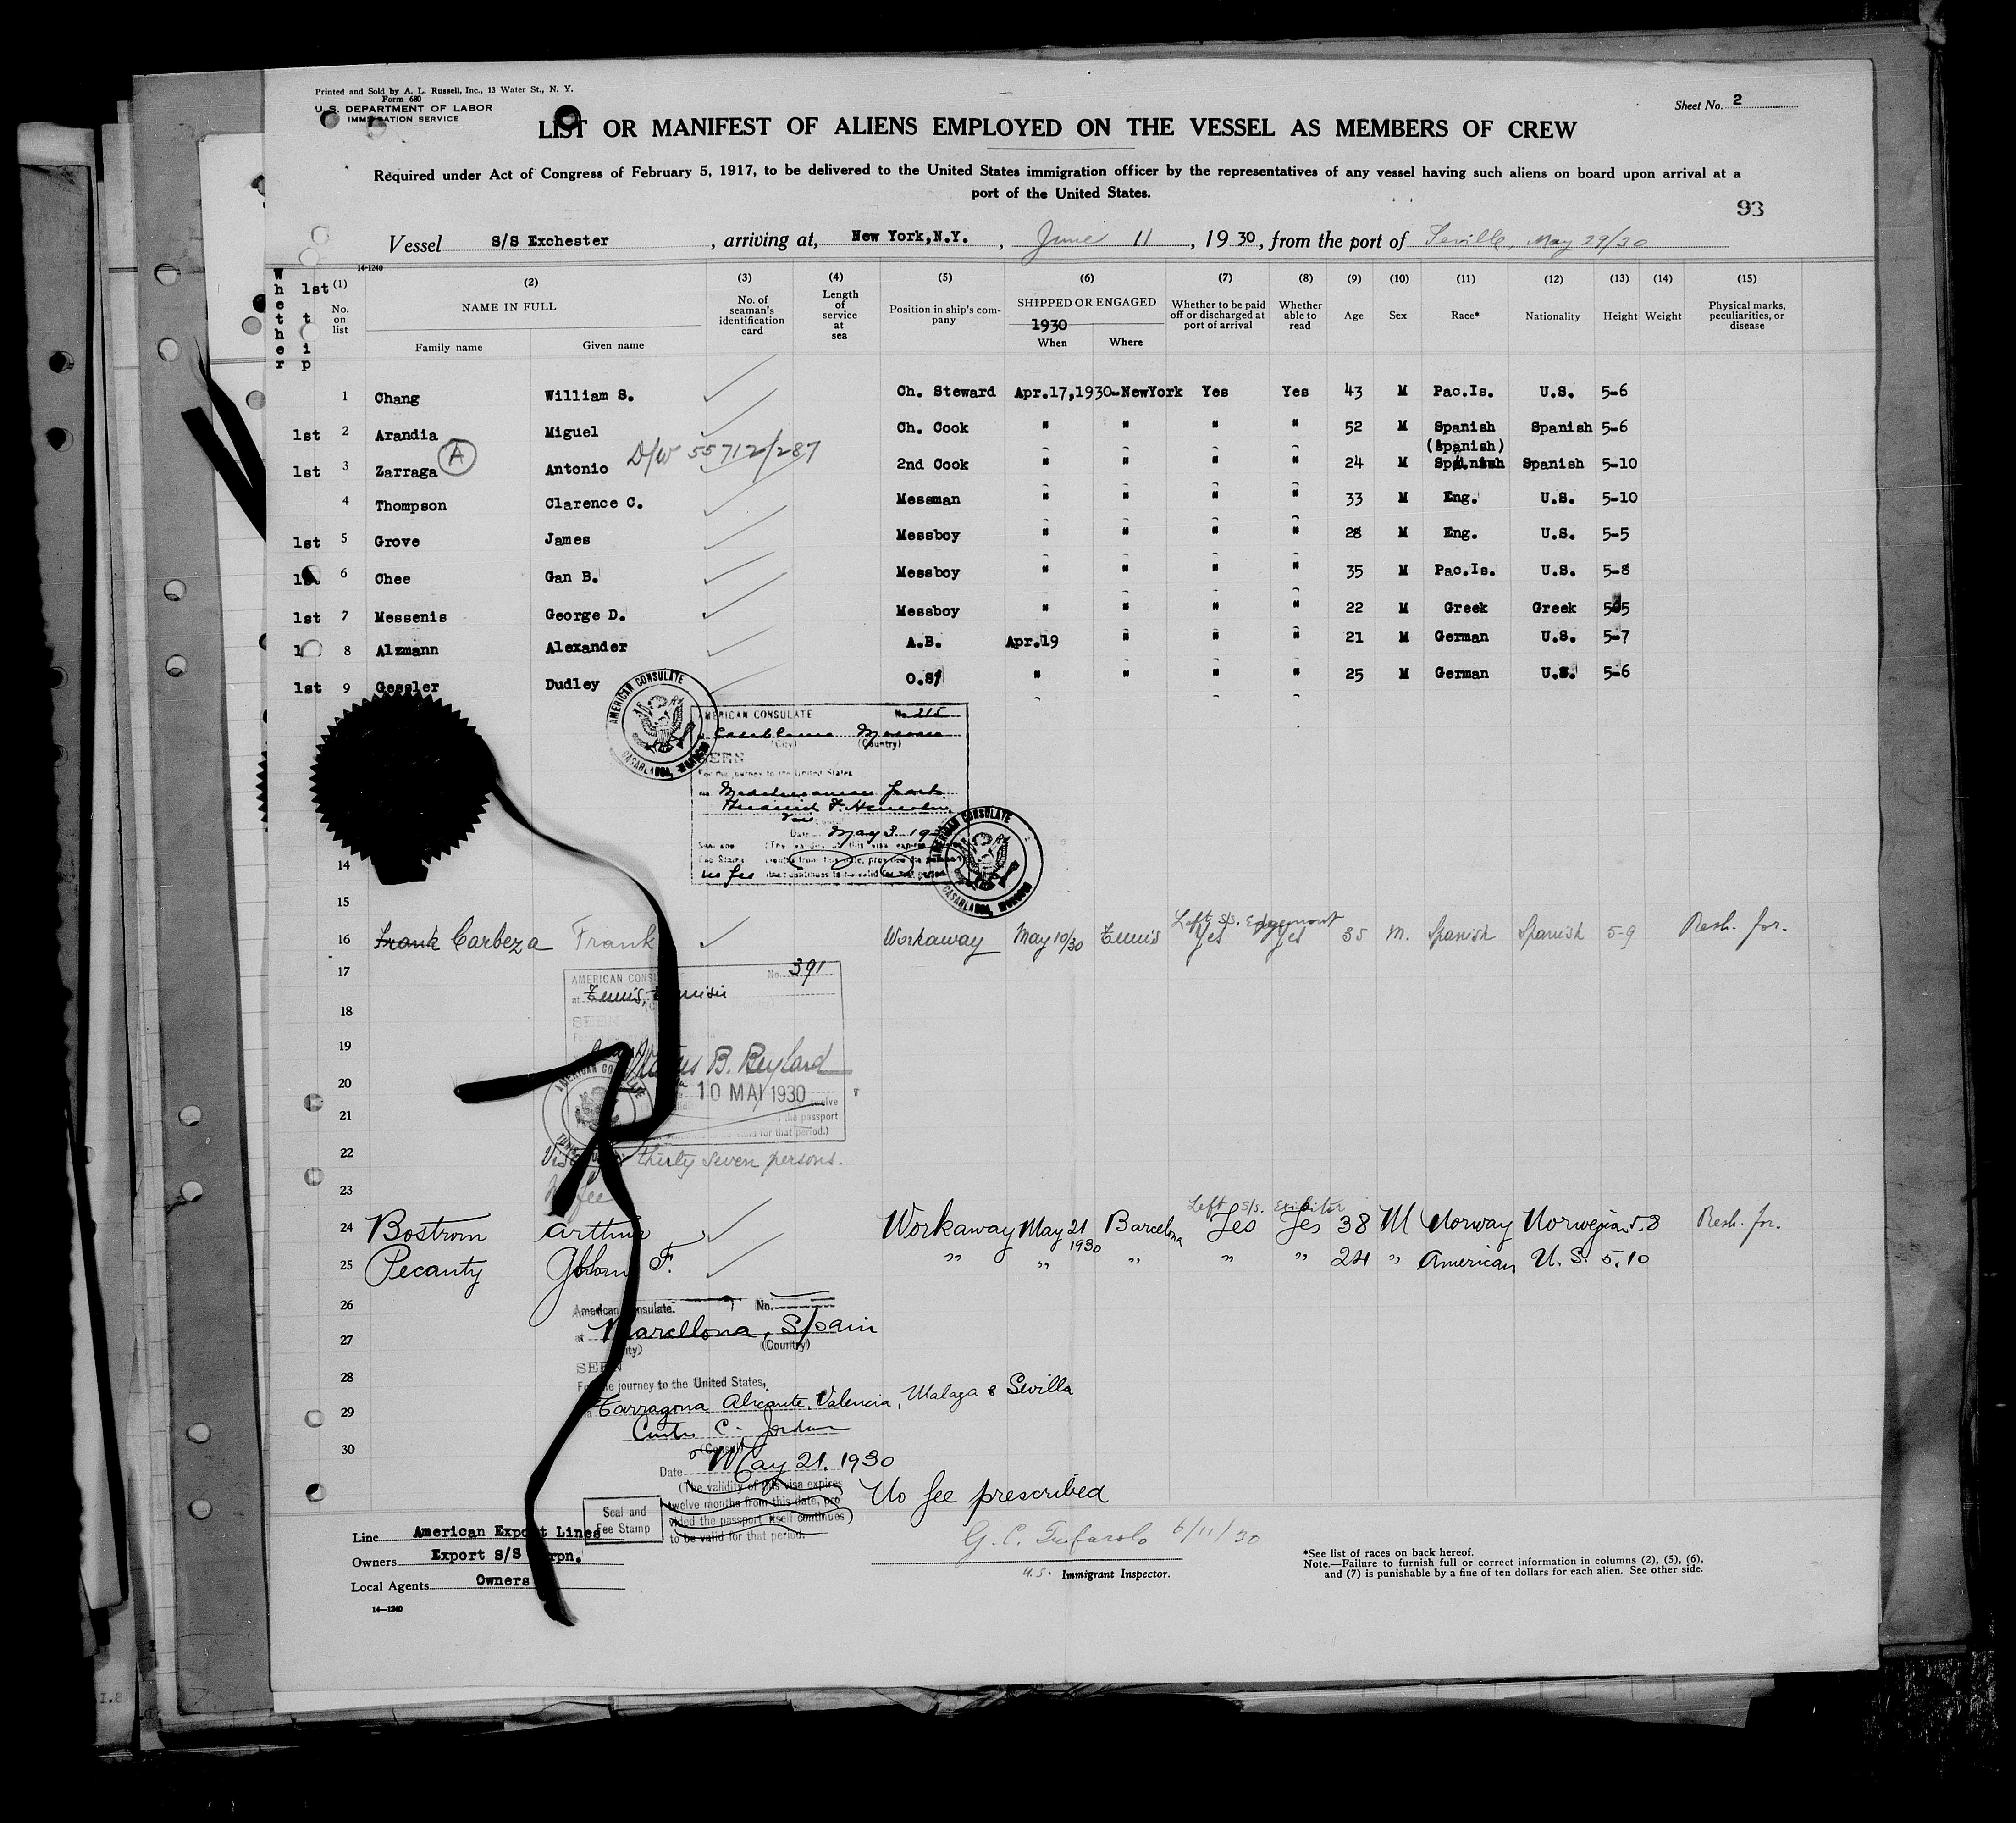 Printed and Sold by A. L. Russell, Inc., 13 Water St., N. Y.
Form 680
U. S. DEPARTMENT OF LABOR
IMMIGRATION SERVICE
Sheet No. 2
LIST OR MANIFEST OF ALIENS EMPLOYED ON THE VESSEL AS MEMBERS OF CREW
Required under Act of Congress of February 5, 1917, to be delivered to the United States immigration officer by the representatives of any vessel having such aliens on board upon arrival at a
port of the United States.
93
Vessel S/S Exchester, arriving at, New York,N.Y., June 11, 1930, from the port of Seville, May 29/30
14-1240
Whether 1st trip
(1) No. on list
(2) NAME IN FULL
Family name Given name
(3) No. of seaman's identification card
(4) Length of service at sea
(5) Position in ship's company
(6) SHIPPED OR ENGAGED
1930
When Where
(7) Whether to be paid off or discharged at port of arrival
(8) Whether able to read
(9) Age
(10) Sex
(11) Race*
(12) Nationality
(13) Height
(14) Weight
(15) Physical marks, peculiarities, or disease
1 Chang William S. Ch. Steward Apr.17,1930-NewYork Yes Yes 43 M Pac.Is. U.S. 5-6
1st 2 Arandia Miguel Ch. Cook " " " " 52 M Spanish Spanish 5-6
(Spanish)
1st 3 Zarraga (A) Antonio D/W 55712/287 2nd Cook " " " " 24 M Spanish Spanish 5-10
4 Thompson Clarence C. Messman " " " " 33 M Eng. U.S. 5-10
1st 5 Grove James Messboy " " " " 28 M Eng. U.S. 5-5
1st 6 Chee Gan B. Messboy " " " " 35 M Pac.Is. U.S. 5-8
1st 7 Messenis George D. Messboy " " " " 22 M Greek Greek 5-5
8 Alzmann Alexander A.B. Apr.19 " " " 21 M German U.S. 5-7
1st 9 Gessler Dudley O.S. " " " " 25 M German U.S. 5-6
AMERICAN CONSULATE
CASABLANCA, MOROCCO
AMERICAN CONSULATE No. 215
Casablanca Morocco
(City) (Country)
SEEN
For the journey to the United States
Mediterranean ports
Date May 3 19
no fee
AMERICAN CONSULATE
CASABLANCA, MOROCCO
14
15
Left s/s. Edgemont
16 Frank Carbeza Frank Workaway May 10/30 Tunis Yes Yes 35 M. Spanish Spanish 5-9 Resh. for.
17
AMERICAN CONSUL No. 391
at Tunis, Tunisia
18
SEEN
19
B. Beyland
20
AMERICAN CONSULATE
10 MAI 1930
21
twelve
the passport
valid for that period.)
22
thirty seven persons.
23
No fee
Left s/s. Exibitor
24 Bostrom Arthur Workaway May 21 1930 Barcelona Yes Yes 38 M Norway Norwegian 5.8 Resh. for.
25 Pecanty F. " " " " " 24 " American U.S. 5.10
26
American Consulate. No.
27
at Barcellona, Spain
(City) (Country)
SEEN
28
For the journey to the United States,
29
Tarragona Alicante, Valencia, Malaga & Sevilla
Curtis C. Jordan
(Consul
30
Date May 21. 1930
(The validity of this visa expires
twelve months from this date, pro
vided the passport itself continues)
to be valid for that period.
Seal and
Fee Stamp
No fee prescribed
Line American Export Lines
Owners Export S/S Corpn.
Local Agents Owners
14—1240
6/11/30
U.S. Immigrant Inspector.
*See list of races on back hereof.
Note.—Failure to furnish full or correct information in columns (2), (5), (6),
and (7) is punishable by a fine of ten dollars for each alien. See other side.